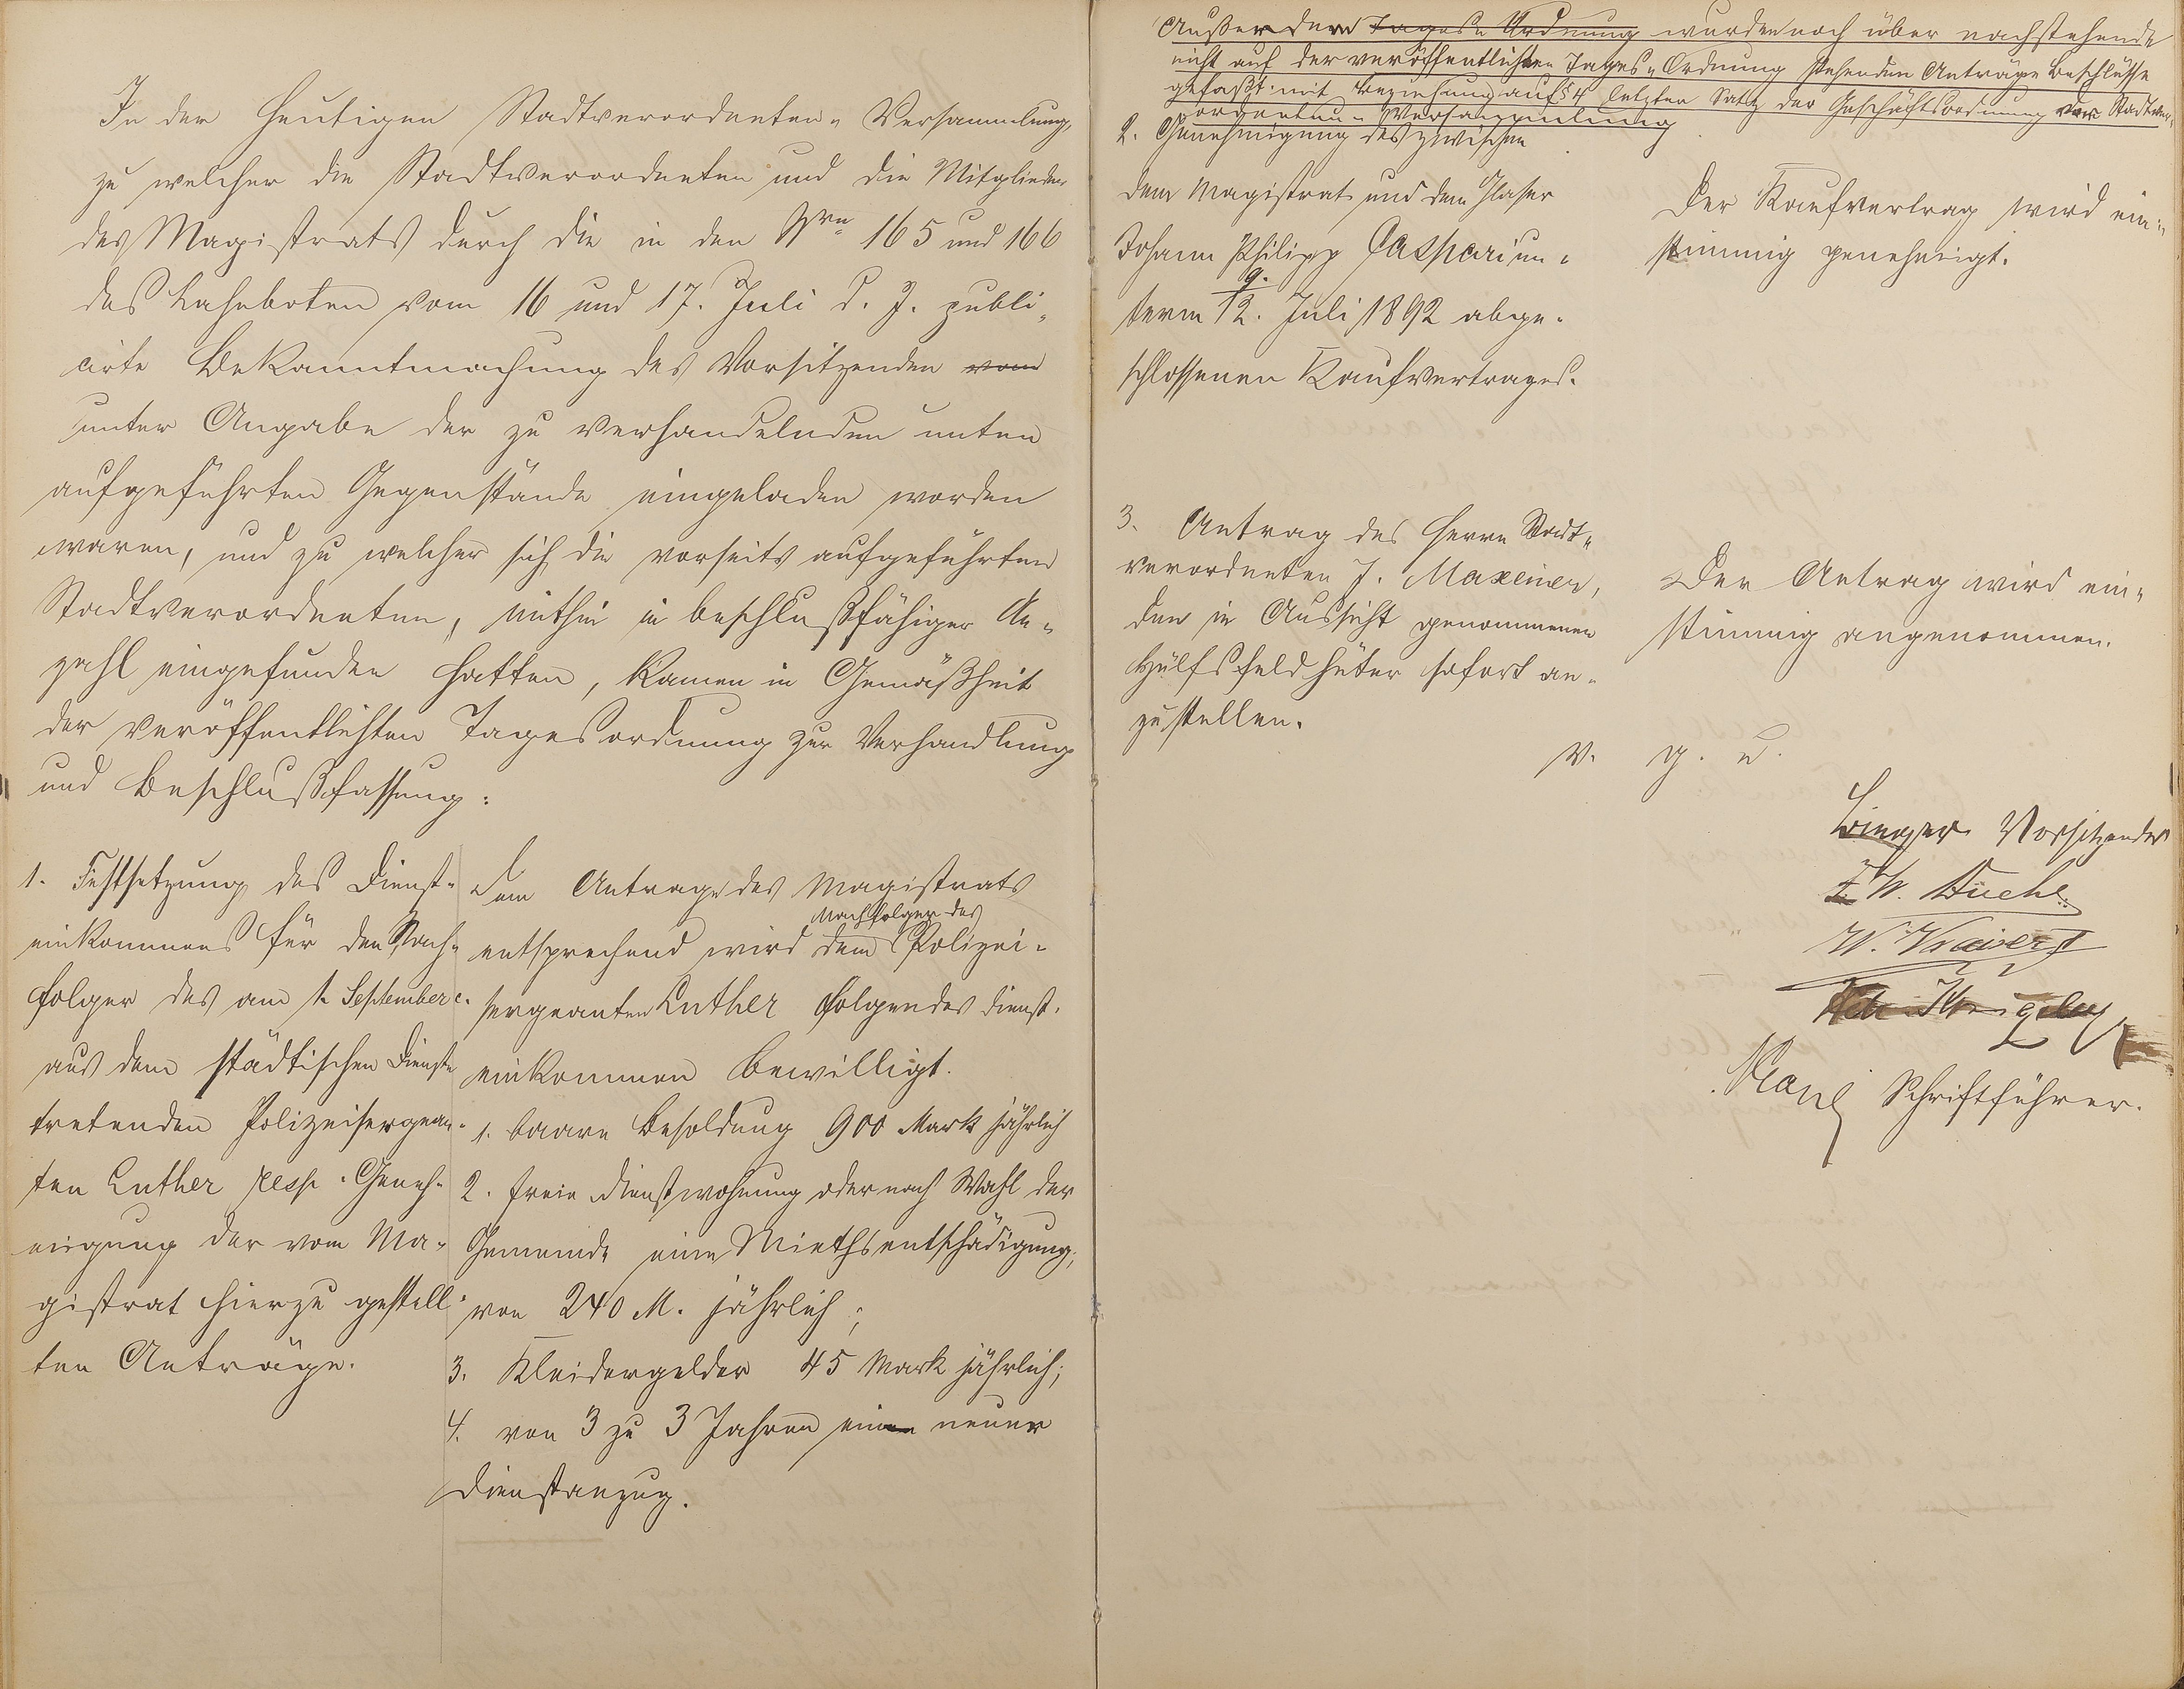 In der heutigen Stadtverordneten-Versammlung,
zu welcher die Stadtverordneten und die Mitglieder
des Magistrats durch die in den Nrn 165 und 166
des Lahnboten vom 16 und 17. Juli d. J. publi-
cirte Bekanntmachung des Vorsitzenden vom
unter Angabe der zu verhandelnden unten
aufgeführten Gegenstände eingeladen worden
waren, und zu welcher sich die vorseits aufgeführten
Stadtverordneten, mithin in beschlußfähiger An-
zahl eingefunden hatten, kamen in Gemäßheit
der veröffentlichten Tagesordnung zur Verhandlung
und Beschlußfassung:
1. Festsetzung des Dienst-
einkommens für den Nach-
folger des am 1. September c.
aus dem städtischen Dienste
tretenden Polizeisergean-
ten Luther resp. Geneh-
migung der vom Ma-
gistrat hierzu gestell-
ten Anträge.
Dem Antrage des Magistrats
Nachfolger des
entsprechend wird dem Polizei-
sergeanten Luther folgendes Dienst-
einkommen bewilligt.
1. baare Besoldung 900 Mark jährlich
2. freie Dienstwohnung oder nach Wahl der
Gemeinde eine Miethsentschädigung,
von 240 M. jährlich;
3. Kleidergelder 45 Mark jährlich;
4. von 3 zu 3 Jahren ein neuer
Dienstanzug.
Außerdem Tages-Ordnung wurden noch über nachstehende
nicht auf der veröffentlichten Tages-Ordnung stehenden Anträge Beschlüsse
gefaßt mit Beziehung auf § 4 letzten Satz der Geschäftsordnung der Stadtver-
ordneten-Versammlung
2. Genehmigung des zwischen
dem Magistrat und dem Glaser
Johann Philipp Caspari un-
9.
term 12. Juli 1892 abge-
schlossenen Kaufvertrages.
Der Kaufvertrag wird ein-
stimmig genehmigt.
3. Antrag des Herrn Stadt-
verordneten J. Maxeiner,
den in Aussicht genommenen
Hülfsfeldhüter sofort an-
zustellen.
Der Antrag wird ein-
stimmig angenommen.
v. g. u.
Vorsitzender
W. Kaiser
Schriftführer.